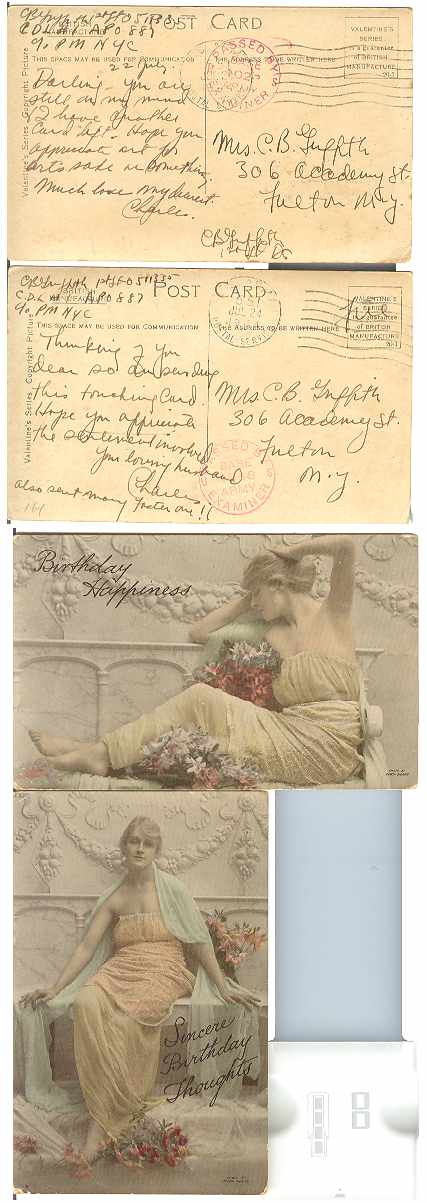 POST CARD
C.D.L. APO 887
℅ PM NYC
THIS SPACE MAY BE USED FOR COMMUNICATION
THE ADDRESS TO BE WRITTEN HERE
VALENTINE'S
SERIES
is a guarantee
of BRITISH
MANUFACTURE
PASSED BY
EXAMINER
Valentine's Series Copyright Picture
22 July
Darling - you are
still on my mind
I have another
Card left - Hope you
appreciate art for
art's sake or something
Much love my dearest
Charles
Mrs. C.B. Griffith
306 Academy St.
Fulton N.Y.
CB Griffith
POST CARD
CB Griffith 0511335
C.D.L. APO 887
℅ PM NYC
THIS SPACE MAY BE USED FOR COMMUNICATION
THE ADDRESS TO BE WRITTEN HERE
VALENTINE'S
SERIES
guarantee
of BRITISH
MANUFACTURE
JUL 24
POSTAL SERVICE
Valentine's Series Copyright Picture
Thinking of you
dear so am sending
this touching card.
Hope you appreciate
the sentiment involved
Your loving husband
Charles
also sent many foster one!!
Mrs. C.B. Griffith
306 Academy St.
Fulton
N.Y.
PASSED BY
BASE
ARMY
EXAMINER
Birthday
Happiness
Sincere
Birthday
Thoughts